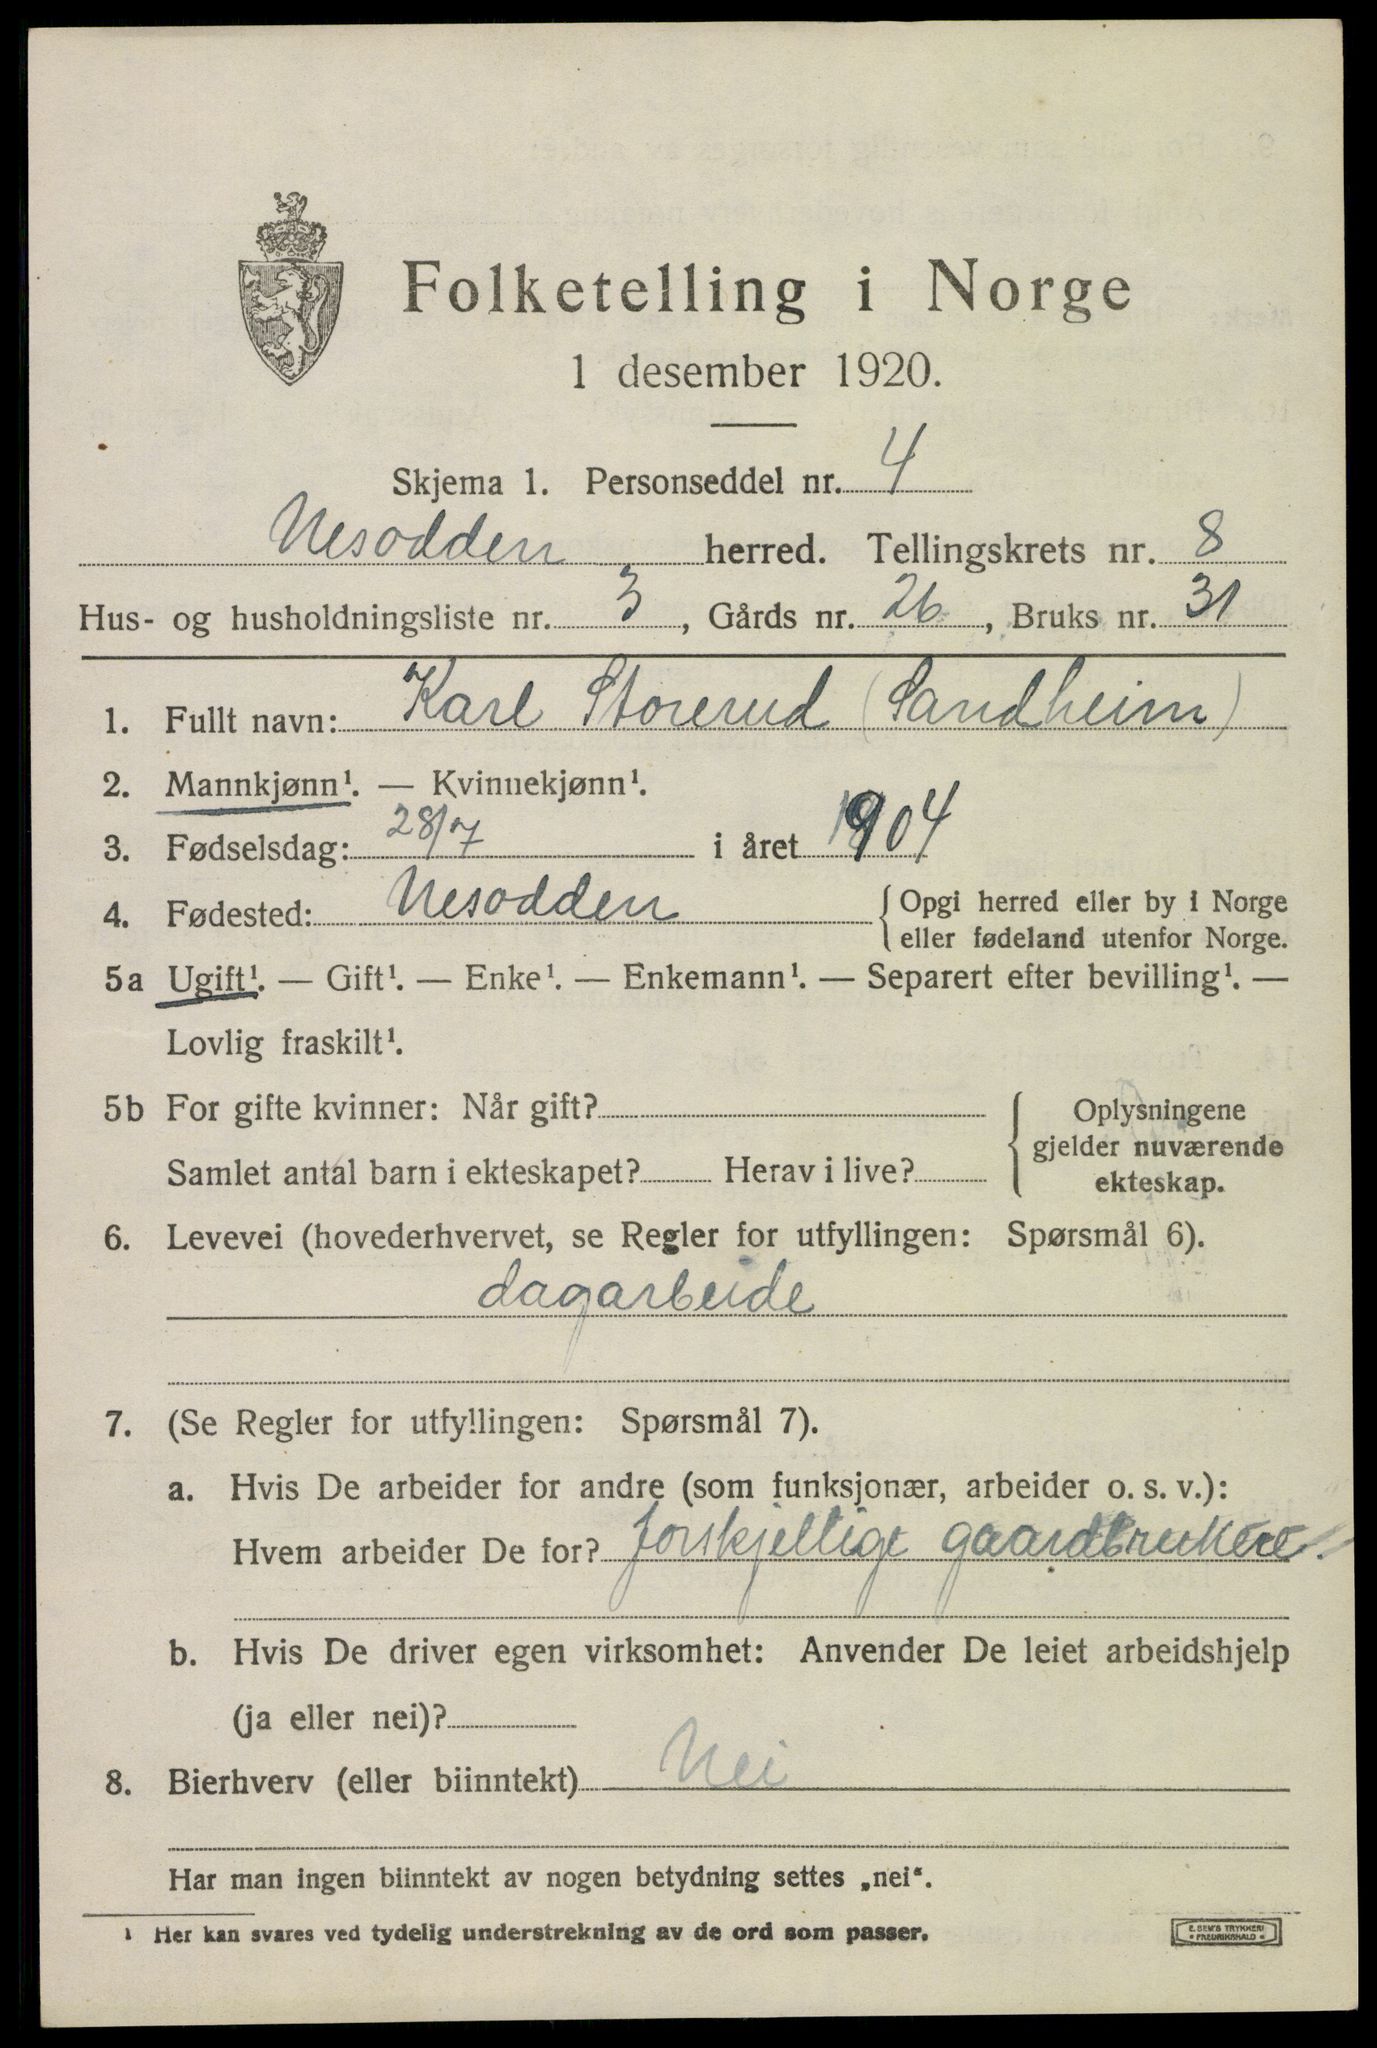 Folketelling i Norge
1 desember 1920.
Skjema 1. Personseddel nr. 4
Nesodden herred. Tellingskrets nr. 8
Hus- og husholdningsliste nr. 3, Gårds nr. 26, Bruks nr. 31
1. Fullt navn: Karl Storerud (Sandheim)
2. Mannkjønn¹. — Kvinnekjønn¹.
3. Fødselsdag: 28/7 i året 1904
4. Fødested: Nesodden { Opgi herred eller by i Norge
eller fødeland utenfor Norge.
5a Ugift¹. — Gift¹. — Enke¹. — Enkemann¹. — Separert efter bevilling¹. —
Lovlig fraskilt¹.
5b For gifte kvinner: Når gift? { Oplysningene
gjelder nuværende
Samlet antal barn i ekteskapet? Herav i live? ekteskap.
6. Levevei (hovederhvervet, se Regler for utfyllingen: Spørsmål 6).
dagarbeide
7. (Se Regler for utfyllingen: Spørsmål 7).
a. Hvis De arbeider for andre (som funksjonær, arbeider o. s. v.):
Hvem arbeider De for? forskjellige gaardbrukere
b. Hvis De driver egen virksomhet: Anvender De leiet arbeidshjelp
(ja eller nei)?
8. Bierhverv (eller biinntekt) Nei
Har man ingen biinntekt av nogen betydning settes „nei“.
¹ Her kan svares ved tydelig understrekning av de ord som passer.
E. SEM'S TRYKKERI
• FREDRIKSHALD •